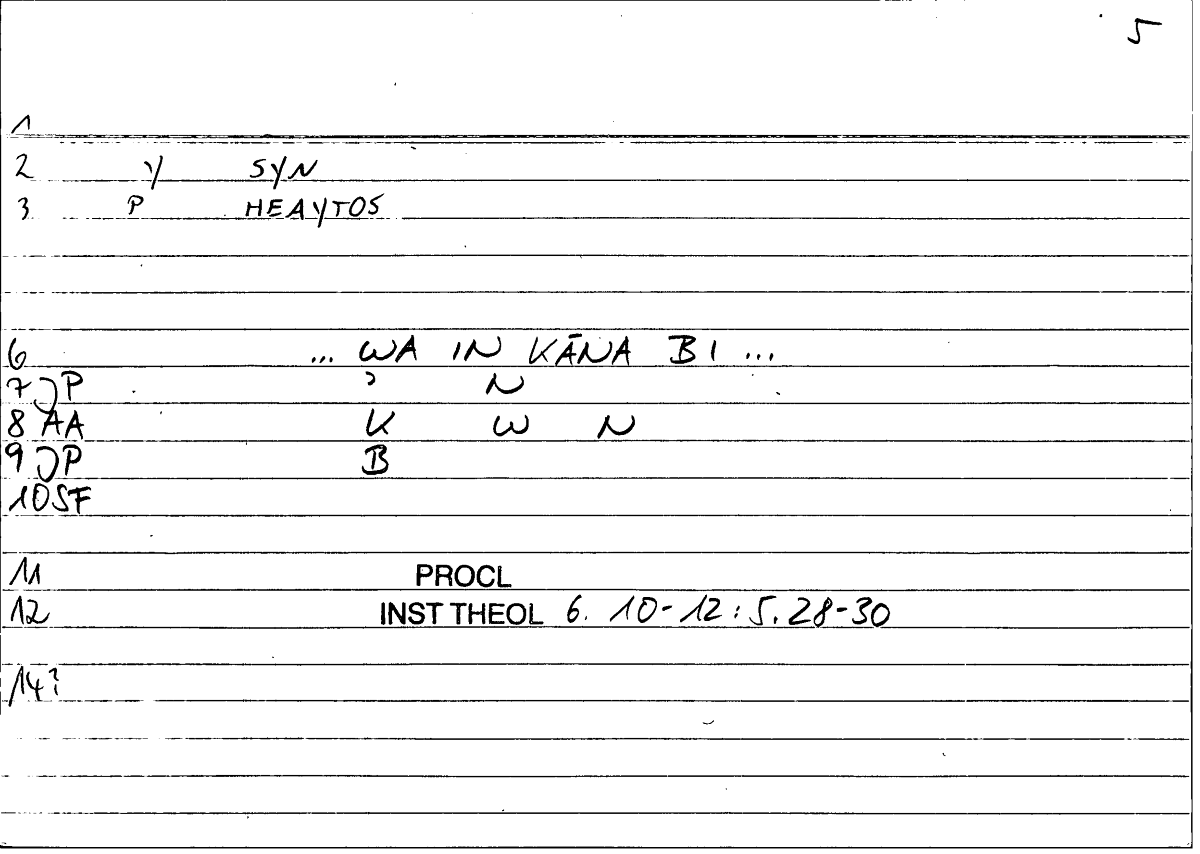 5
1
2 Y SYN
3 P HEAYTOS
6 ... WA IN KĀNA BI ...
7 JP ʾ N
8 AA K W N
9 JP B
10 SF
11 PROCL
12 INST THEOL 6. 10-12 : 5. 28-30
14?